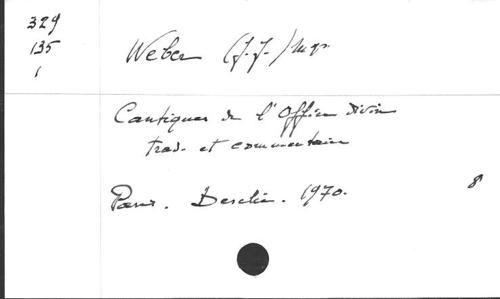 329
135
1
Weber (J.J.) Mgr.
Cantiques de l'Office divin
trad. et commentaire
Paris. Desclée. 1970.
8